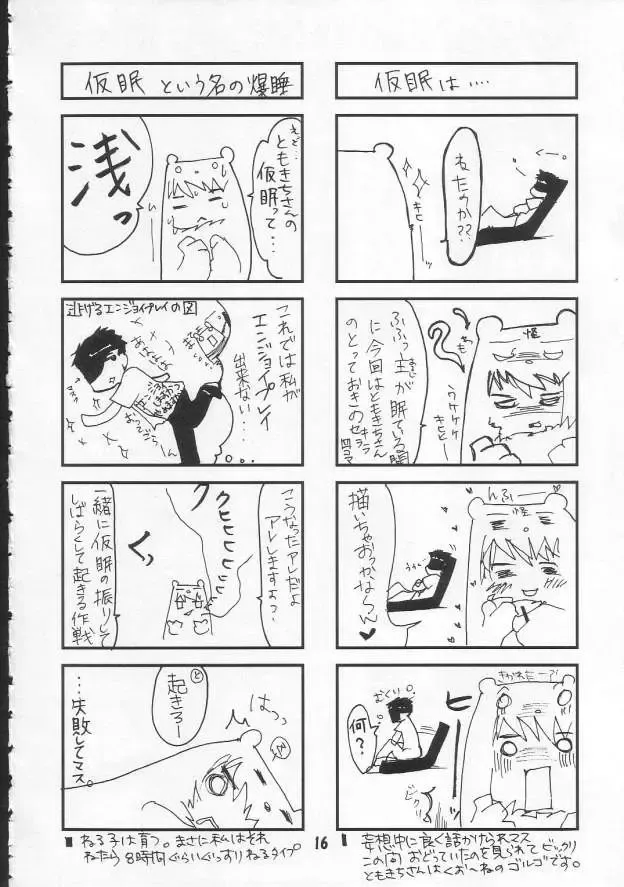 仮眠は‥‥
ねたのか??
キヒー
ふふっ主が眠ている間
に今回はともきちさん
のとっておきのセキララ
四コマ
ウケケケ
キヒヒー
怪
んふー
怪
描いちゃおっかならん♥
きかれたーっ!
むくり。
何?
ヒ
ビクッ
妄想中に良く話かけられマス
この間おどっていたのを見られてビックリ
ともきちさんはくお〜ねのゴルゴです。
仮眠という名の爆睡
えと…
ともきちさんの
仮眠って…
浅っ
逃げるエンジョイプレイの図
これでは私が
エンジョイプレイ
出来ない…
こうなったアレだよ
アレしますよっ?
クヒヒヒッ
くっ
一緒に仮眠の振りして
しばらくして起きる作戦
と
起きろー
はっっ
…失敗してマス。
ねる子は育つ。まさに私はそれ
ねたら8時間ぐらいぐっすりねるタイプ
16